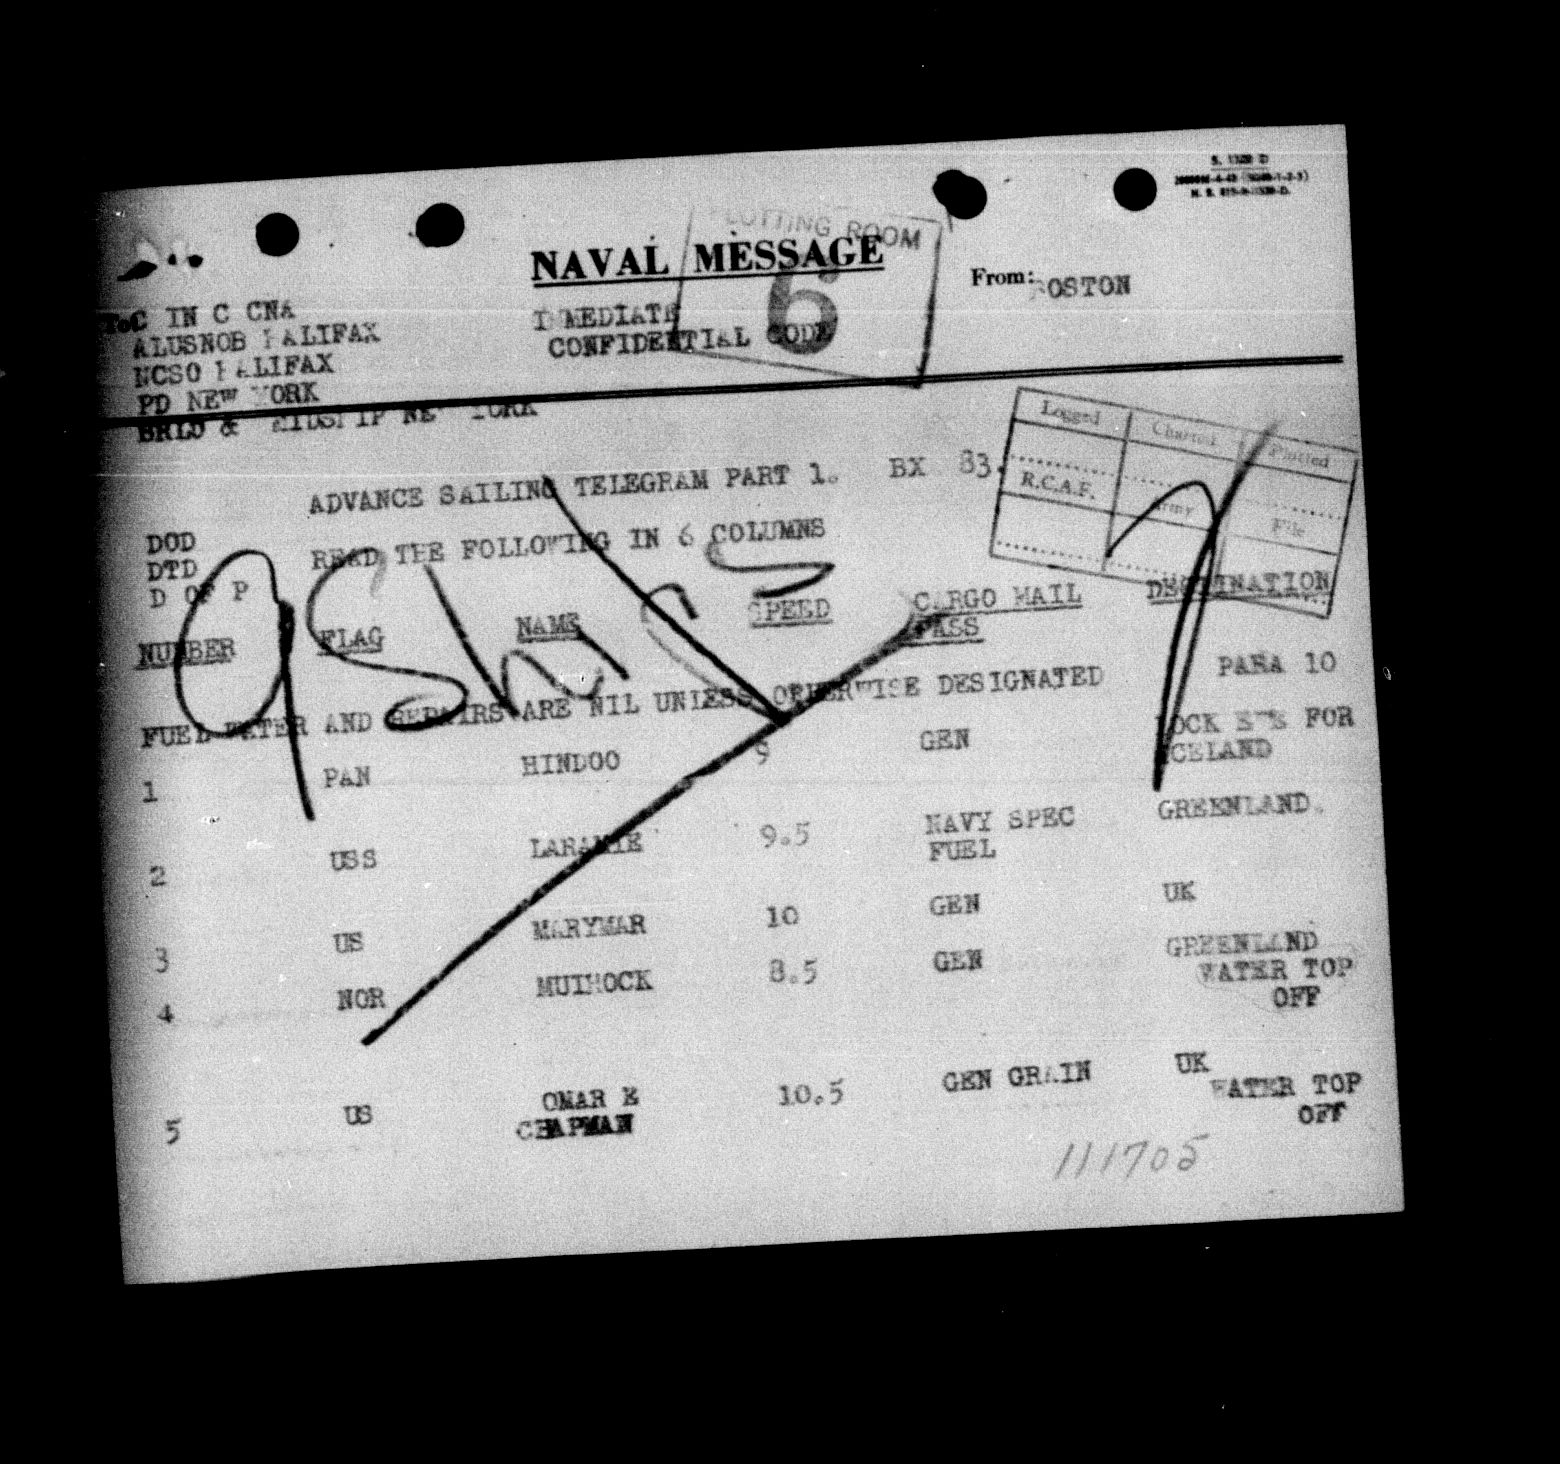 S. 1320 D
PLOTTING ROOM
6
NAVAL MESSAGE
From: BOSTON
To C IN C CNA
IMMEDIATE
ALUSNOB HALIFAX
CONFIDENTIAL CODE
NCSO HALIFAX
PD NEW YORK
NEW YORK
Logged Charted Plotted
R.C.A.F. Army File
ADVANCE SAILING TELEGRAM PART 1. BX 83.
DOD
READ THE FOLLOWING IN 6 COLUMNS
DTD
D OF P
9 Ships
NUMBER FLAG NAME SPEED CARGO MAIL DESTINATION
PASS
PARA 10
FUEL WATER AND REPAIRS ARE NIL UNLESS OTHERWISE DESIGNATED
1 PAN HINDOO 9 GEN FOR
ICELAND
2 USS LARAMIE 9.5 NAVY SPEC GREENLAND.
FUEL
3 US MARYMAR 10 GEN UK
4 NOR 8.5 GEN GREENLAND
WATER TOP
OFF
5 US OMAR E 10.5 GEN GRAIN UK
CHAPMAN WATER TOP
OFF
111705